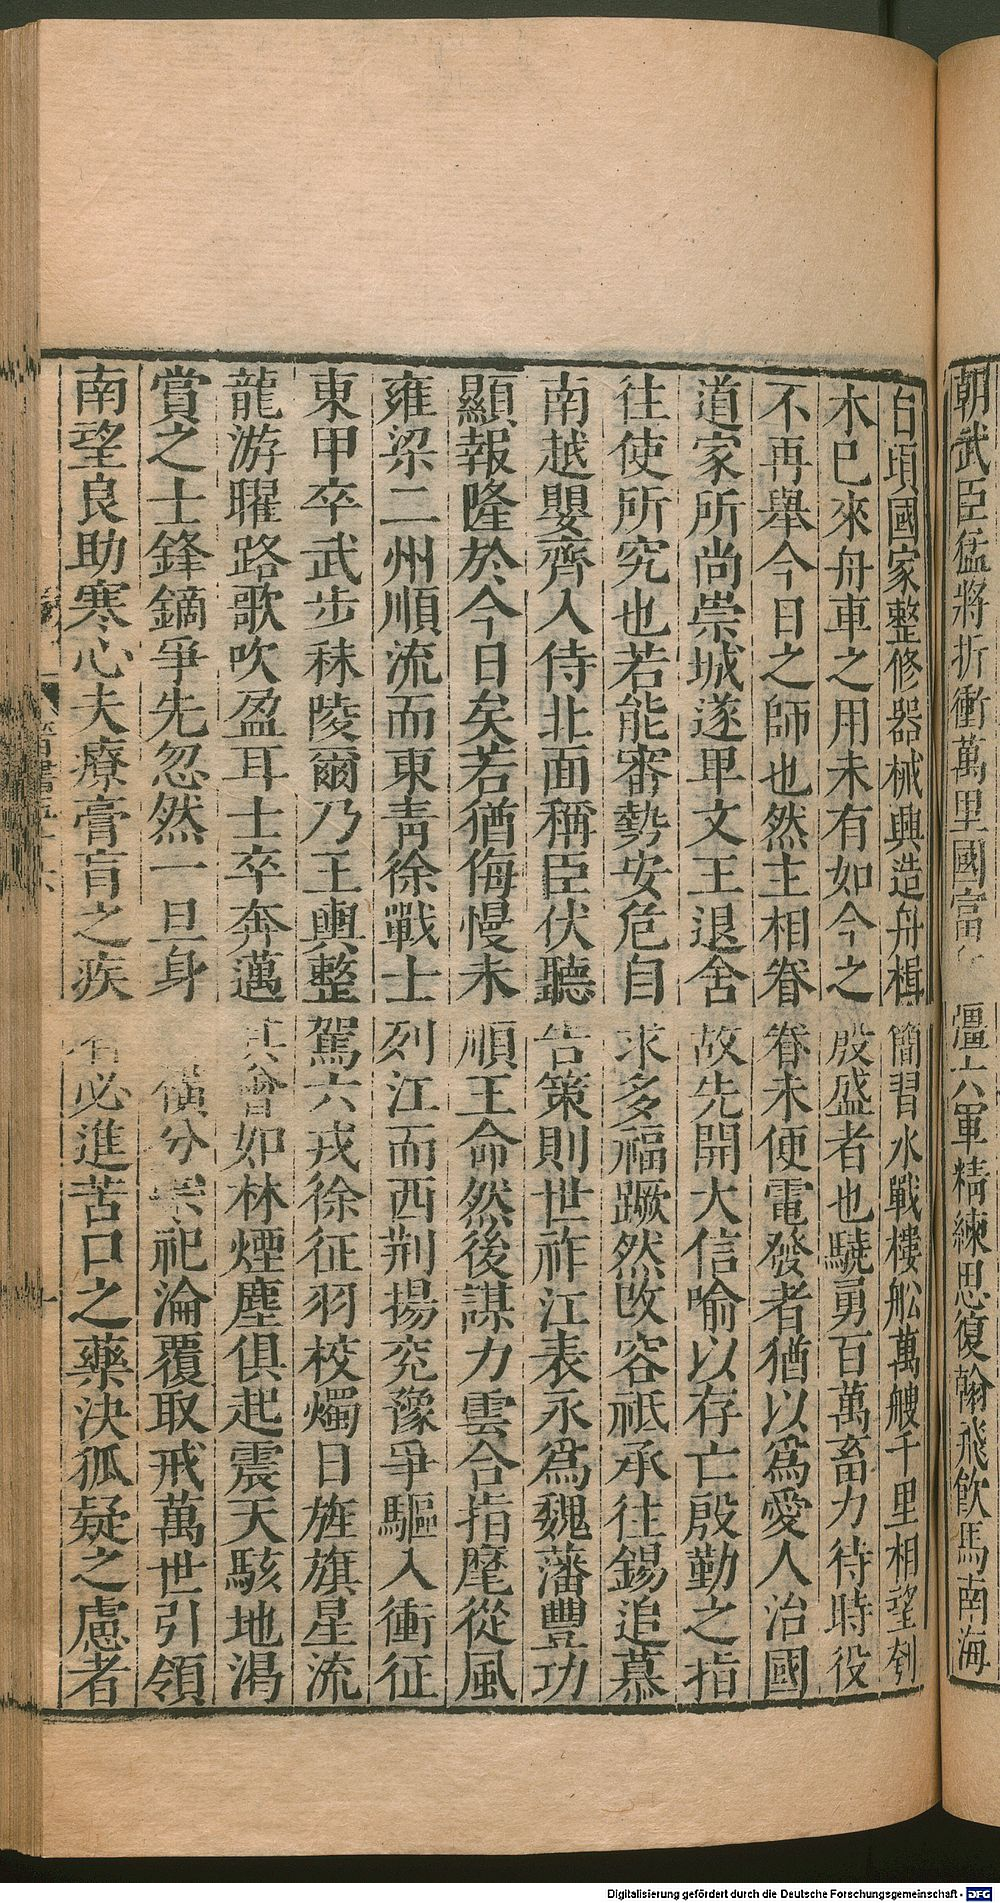 朝武臣猛將折衝萬里國富 彊六軍精練思復翰飛飲馬南海
自頃國家整修器械興造舟楫簡習水戰樓舩萬艘千里相望刳
木已來舟車之用未有如今之殷盛者也驍勇百萬畜力待時役
不再舉今日之師也然主相眷眷未便電發者猶以爲愛人治國
道家所尚崇城遂卑文王退舍故先開大信喻以存亡殷勤之指
往使所究也若能審勢安危自求多福蹶然改容祗承往錫追慕
南越嬰齊入侍北面稱臣伏聽告策則世祚江表永爲魏藩豐功
顯報隆於今日矣若猶侮慢未順王命然後謀力雲合指麾從風
雍梁二州順流而東青徐戰士列江而西荆揚兖豫爭驅入衝征
東甲卒武步秣陵爾乃王輿整駕六戎徐征羽校燭日旌旗星流
龍游曜路歌吹盈耳士卒奔邁其會如林煙塵俱起震天駭地渴
賞之士鋒鏑爭先忽然一旦身 橫分宗祀淪覆取戒萬世引領
南望良助寒心夫療膏肓之疾者必進苦口之藥決狐疑之慮者
晉書五十六
Digitalisierung gefördert durch die Deutsche Forschungsgemeinschaft - DFG